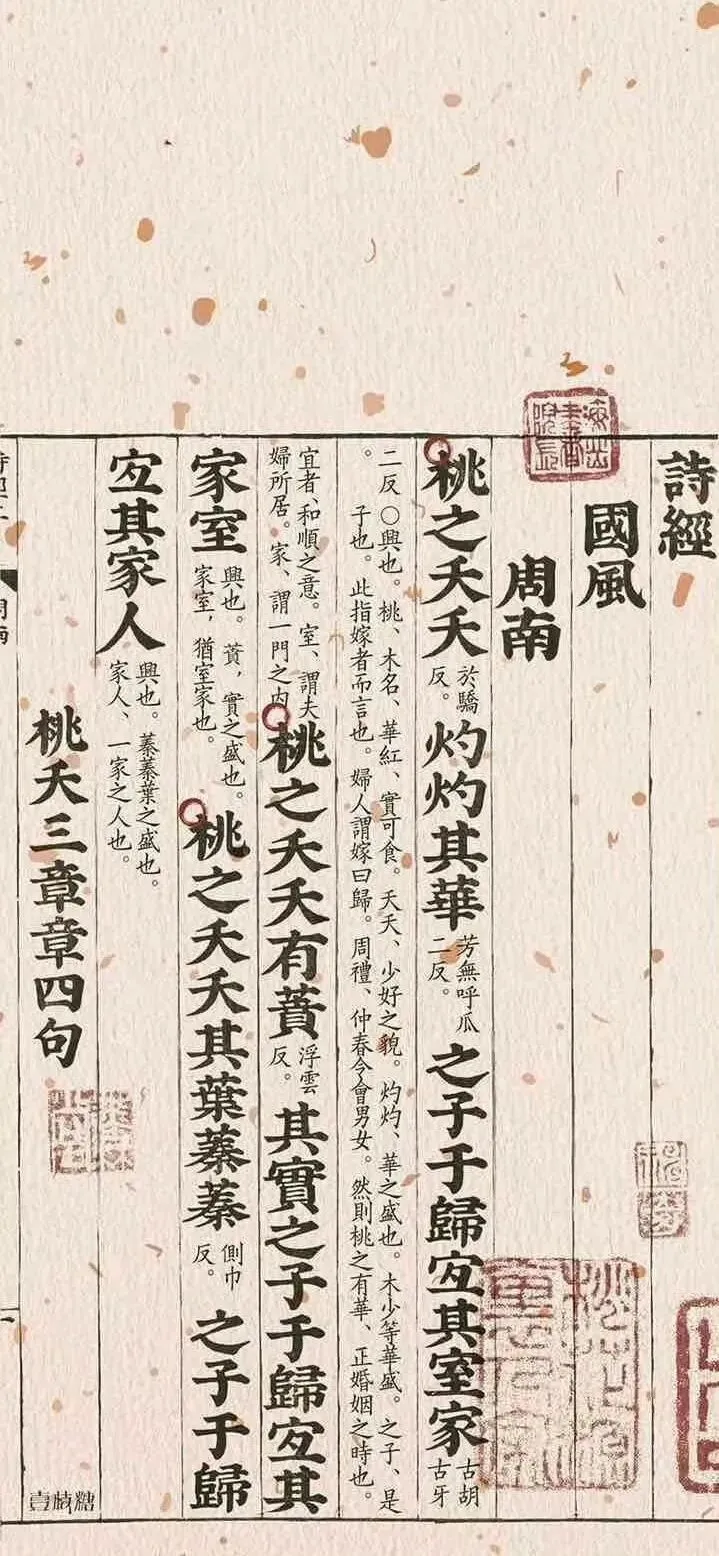 詩經
國風
周南
桃之夭夭於驕反。灼灼其華芳無呼瓜二反。之子于歸宐其室家古胡古牙
二反〇興也。桃、木名、華紅、實可食。夭夭、少好之貌。灼灼、華之盛也。木少等華盛。之子、是
子也。此指嫁者而言也。婦人謂嫁曰歸。周禮、仲春令會男女。然則桃之有華、正婚姻之時也。
宜者、和順之意。室、謂夫婦所居。家、謂一門之內。桃之夭夭有蕡浮雲反。其實之子于歸宐其
家室興也。蕡，實之盛也。家室，猶室家也。桃之夭夭其葉蓁蓁側巾反。之子于歸
宐其家人興也。蓁蓁葉之盛也。家人、一家之人也。
桃夭三章章四句